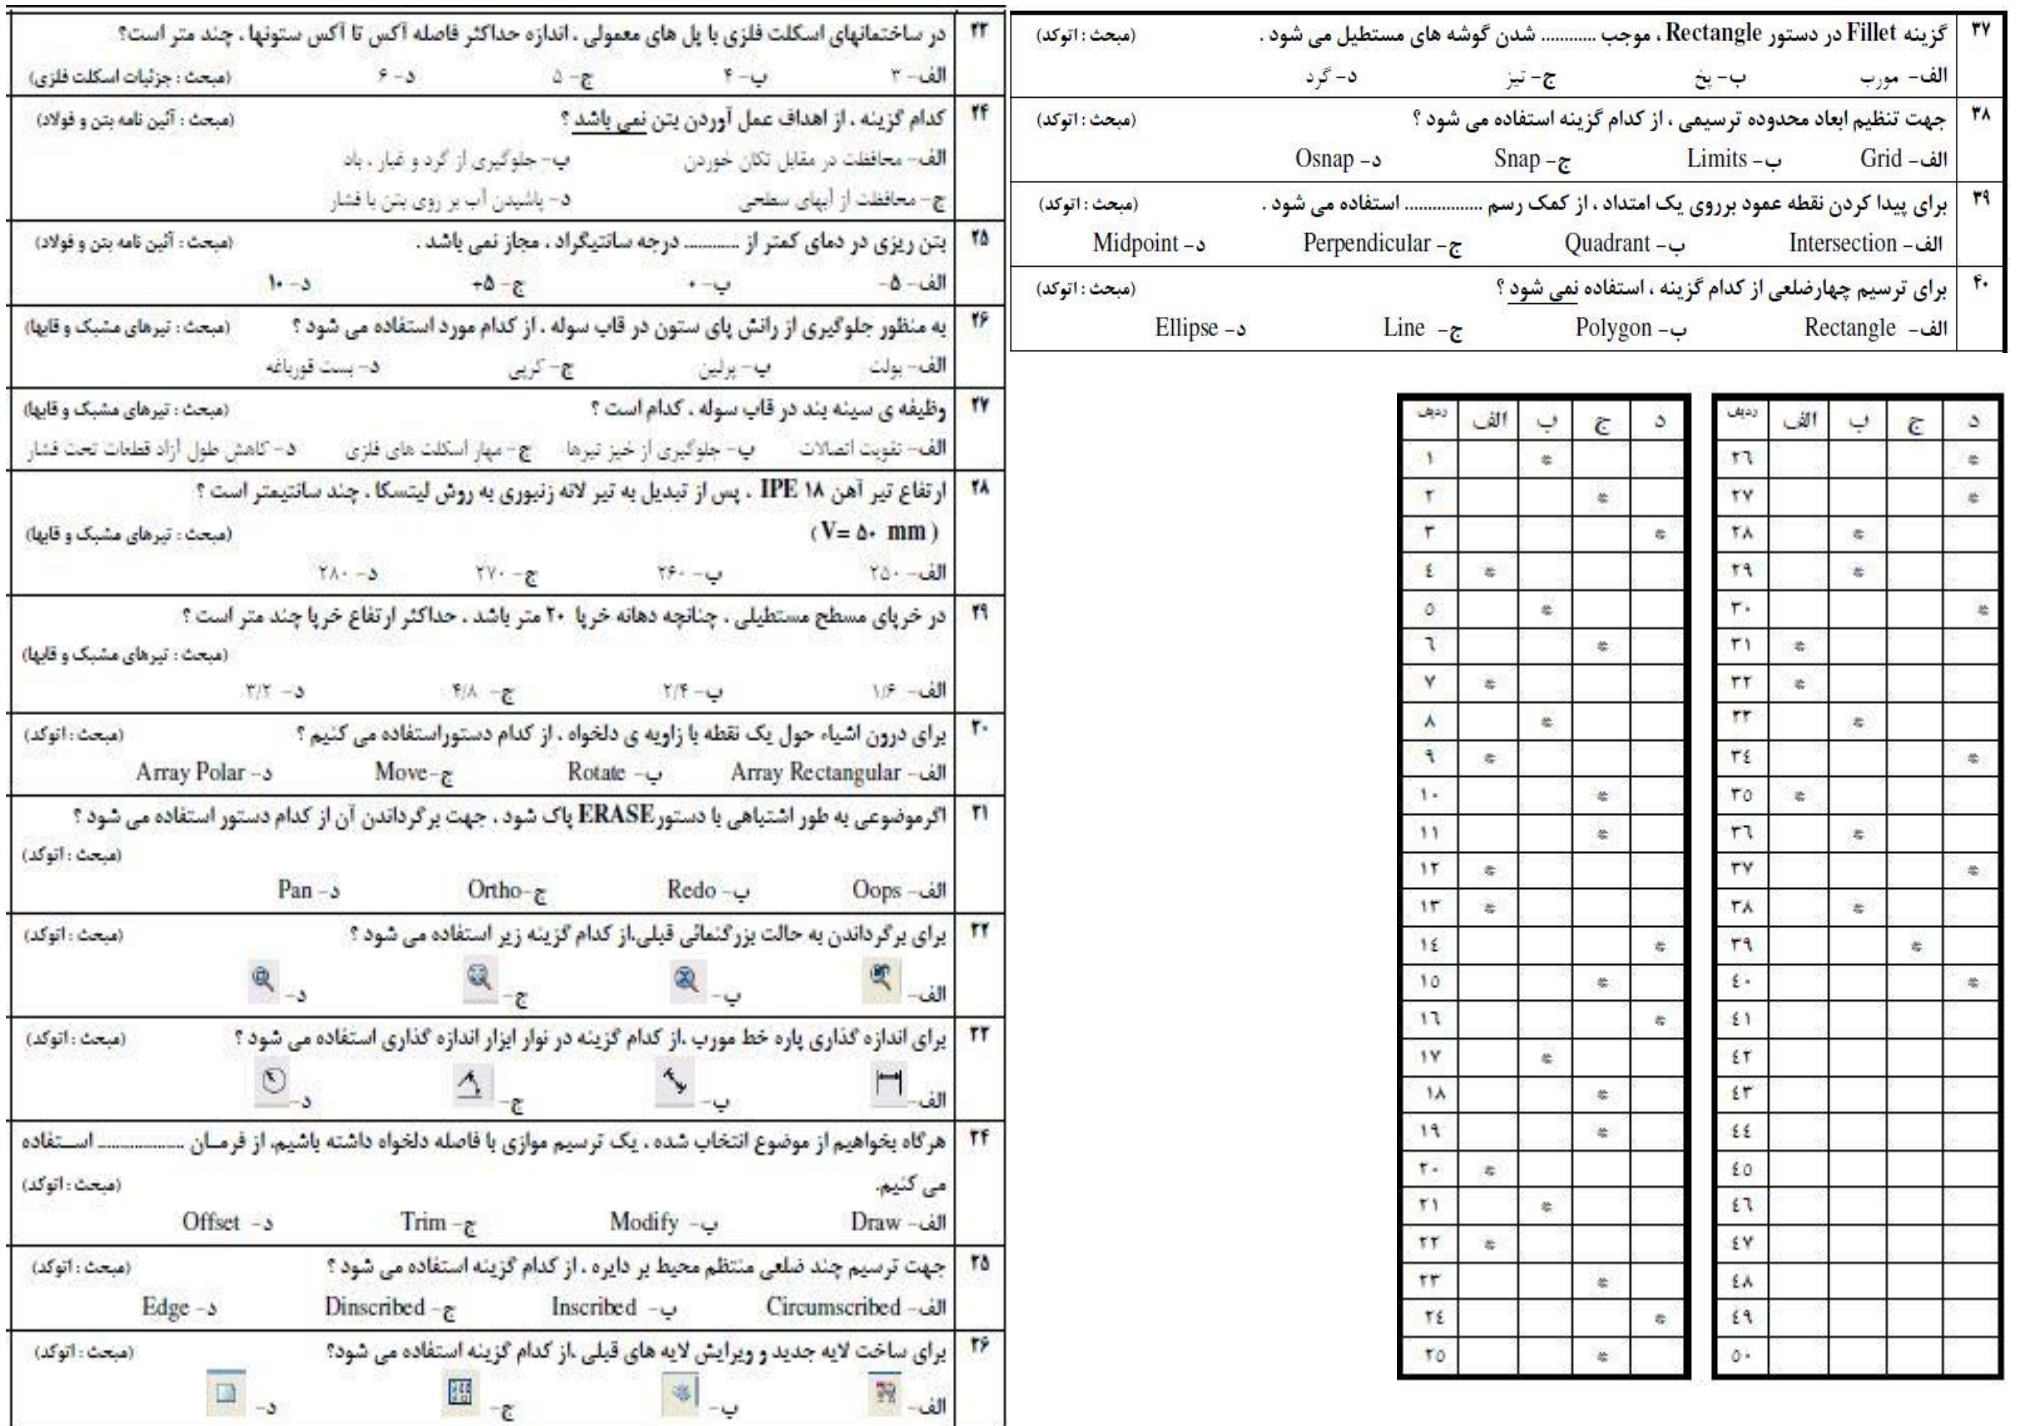 ۲۳ در ساختمانهای اسکلت فلزی با پل های معمولی ، اندازه حداکثر فاصله آکس تا آکس ستونها ، چند متر است؟
الف- ۳ ب- ۴ ج- ۵ د- ۶ (مبحث : جزئیات اسکلت فلزی)
۲۴ کدام گزینه ، از اهداف عمل آوردن بتن نمی باشد ؟ (مبحث : آئین نامه بتن و فولاد)
الف- محافظت در مقابل تکان خوردن ب- جلوگیری از گرد و غبار ، باد
ج- محافظت از آبهای سطحی د- پاشیدن آب بر روی بتن با فشار
۲۵ بتن ریزی در دمای کمتر از ........... درجه سانتیگراد ، مجاز نمی باشد . (مبحث : آئین نامه بتن و فولاد)
الف- ۵- ب- ۰ ج- ۵+ د- ۱۰
۲۶ به منظور جلوگیری از رانش پای ستون در قاب سوله ، از کدام مورد استفاده می شود ؟ (مبحث : تیرهای مشبک و قابها)
الف- بولت ب- پرلین ج- کرپی د- بست قورباغه
۲۷ وظیفه ی سینه بند در قاب سوله ، کدام است ؟ (مبحث : تیرهای مشبک و قابها)
الف- تقویت اتصالات ب- جلوگیری از خیز تیرها ج- مهار اسکلت های فلزی د- کاهش طول آزاد قطعات تحت فشار
۲۸ ارتفاع تیر آهن IPE ۱۸ ، پس از تبدیل به تیر لانه زنبوری به روش لیتسکا ، چند سانتیمتر است ؟
(V= ۵۰ mm) (مبحث : تیرهای مشبک و قابها)
الف- ۲۵۰ ب- ۲۶۰ ج- ۲۷۰ د- ۲۸۰
۲۹ در خرپای مسطح مستطیلی ، چنانچه دهانه خرپا ۲۰ متر باشد ، حداکثر ارتفاع خرپا چند متر است ؟
(مبحث : تیرهای مشبک و قابها)
الف- ۱/۶ ب- ۲/۴ ج- ۴/۸ د- ۳/۲
۳۰ برای درون اشیاء حول یک نقطه با زاویه ی دلخواه ، از کدام دستوراستفاده می کنیم ؟ (مبحث : اتوکد)
الف- Array Rectangular ب- Rotate ج- Move د- Array Polar
۳۱ اگرموضوعی به طور اشتباهی با دستورERASE پاک شود ، جهت برگرداندن آن از کدام دستور استفاده می شود ؟
(مبحث : اتوکد)
الف- Oops ب- Redo ج- Ortho د- Pan
۳۲ برای برگرداندن به حالت بزرگنمائی قبلی،از کدام گزینه زیر استفاده می شود ؟ (مبحث : اتوکد)
الف- ب- ج- د-
۳۳ برای اندازه گذاری پاره خط مورب ،از کدام گزینه در نوار ابزار اندازه گذاری استفاده می شود ؟ (مبحث : اتوکد)
الف- ب- ج- د-
۳۴ هرگاه بخواهیم از موضوع انتخاب شده ، یک ترسیم موازی با فاصله دلخواه داشته باشیم، از فرمـان .................. استفاده
می کنیم. (مبحث : اتوکد)
الف- Draw ب- Modify ج- Trim د- Offset
۳۵ جهت ترسیم چند ضلعی منتظم محیط بر دایره ، از کدام گزینه استفاده می شود ؟ (مبحث : اتوکد)
الف- Circumscribed ب- Inscribed ج- Dinscribed د- Edge
۳۶ برای ساخت لایه جدید و ویرایش لایه های قبلی ،از کدام گزینه استفاده می شود؟ (مبحث : اتوکد)
الف- ب- ج- د-
۳۷ گزینه Fillet در دستور Rectangle ، موجب ........... شدن گوشه های مستطیل می شود . (مبحث : اتوکد)
الف- مورب ب- پخ ج- تیز د- گرد
۳۸ جهت تنظیم ابعاد محدوده ترسیمی ، از کدام گزینه استفاده می شود ؟ (مبحث : اتوکد)
الف- Grid ب- Limits ج- Snap د- Osnap
۳۹ برای پیدا کردن نقطه عمود برروی یک امتداد ، از کمک رسم ................ استفاده می شود . (مبحث : اتوکد)
الف- Intersection ب- Quadrant ج- Perpendicular د- Midpoint
۴۰ برای ترسیم چهارضلعی از کدام گزینه ، استفاده نمی شود ؟ (مبحث : اتوکد)
الف- Rectangle ب- Polygon ج- Line د- Ellipse
ردیف الف ب ج د
۱ *
۲ *
۳ *
٤ *
٥ *
٦ *
۷ *
۸ *
۹ *
۱۰ *
۱۱ *
۱۲ *
۱۳ *
۱٤ *
۱٥ *
۱٦ *
۱۷ *
۱۸ *
۱۹ *
۲۰ *
۲۱ *
۲۲ *
۲۳ *
۲٤ *
۲٥ *
ردیف الف ب ج د
۲٦ *
۲۷ *
۲۸ *
۲۹ *
۳۰ *
۳۱ *
۳۲ *
۳۳ *
۳٤ *
۳٥ *
۳٦ *
۳۷ *
۳۸ *
۳۹ *
٤۰ *
٤۱
٤۲
٤۳
٤٤
٤٥
٤٦
٤۷
٤۸
٤۹
٥۰